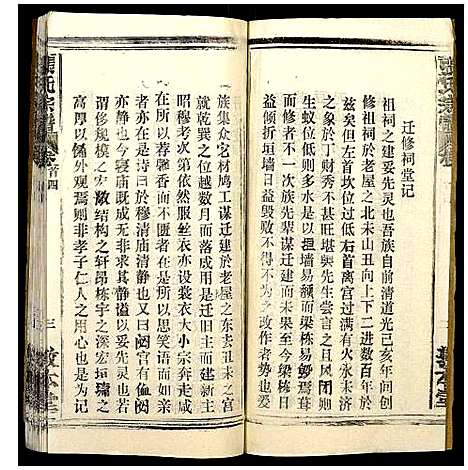 迁修祠堂记
祖祠之建妥先灵也吾族自前清道光己亥年间创
修祖祠于老屋之北未山丑向上下二进数百年於
兹矣但左右首坎位过低右首离位过满有火水未济
之象於丁财秀不甚旺堪舆先生尝言之且风闭则
生蚁位低则多湿以土墙易颓而梁栋易朽焉葺
修者不一次族先辈谋迁建而未果至今梁栋
将折垣墙日益毁败不得不为之改作者势也爰
族集众它材鸠工谋迁建於老屋之东去丑未之宫
就乾巽之位越数月而落成用是迁旧主而建新主
昭穆考次第依然服丝衣亦设裳衣大小宗奔走咸
在荐馨香於以来格来歆祖考所以思笑语而
亦静也今寝庙既成於时穆清庙清静也閟宫有侐閟
谓侈规模之宏敞结构之轩昂栋宇之深宏垣墉之
高厚以饰外观焉则非孝子仁人之用心也是为记
张氏宗谱
卷首四
三
敦本堂